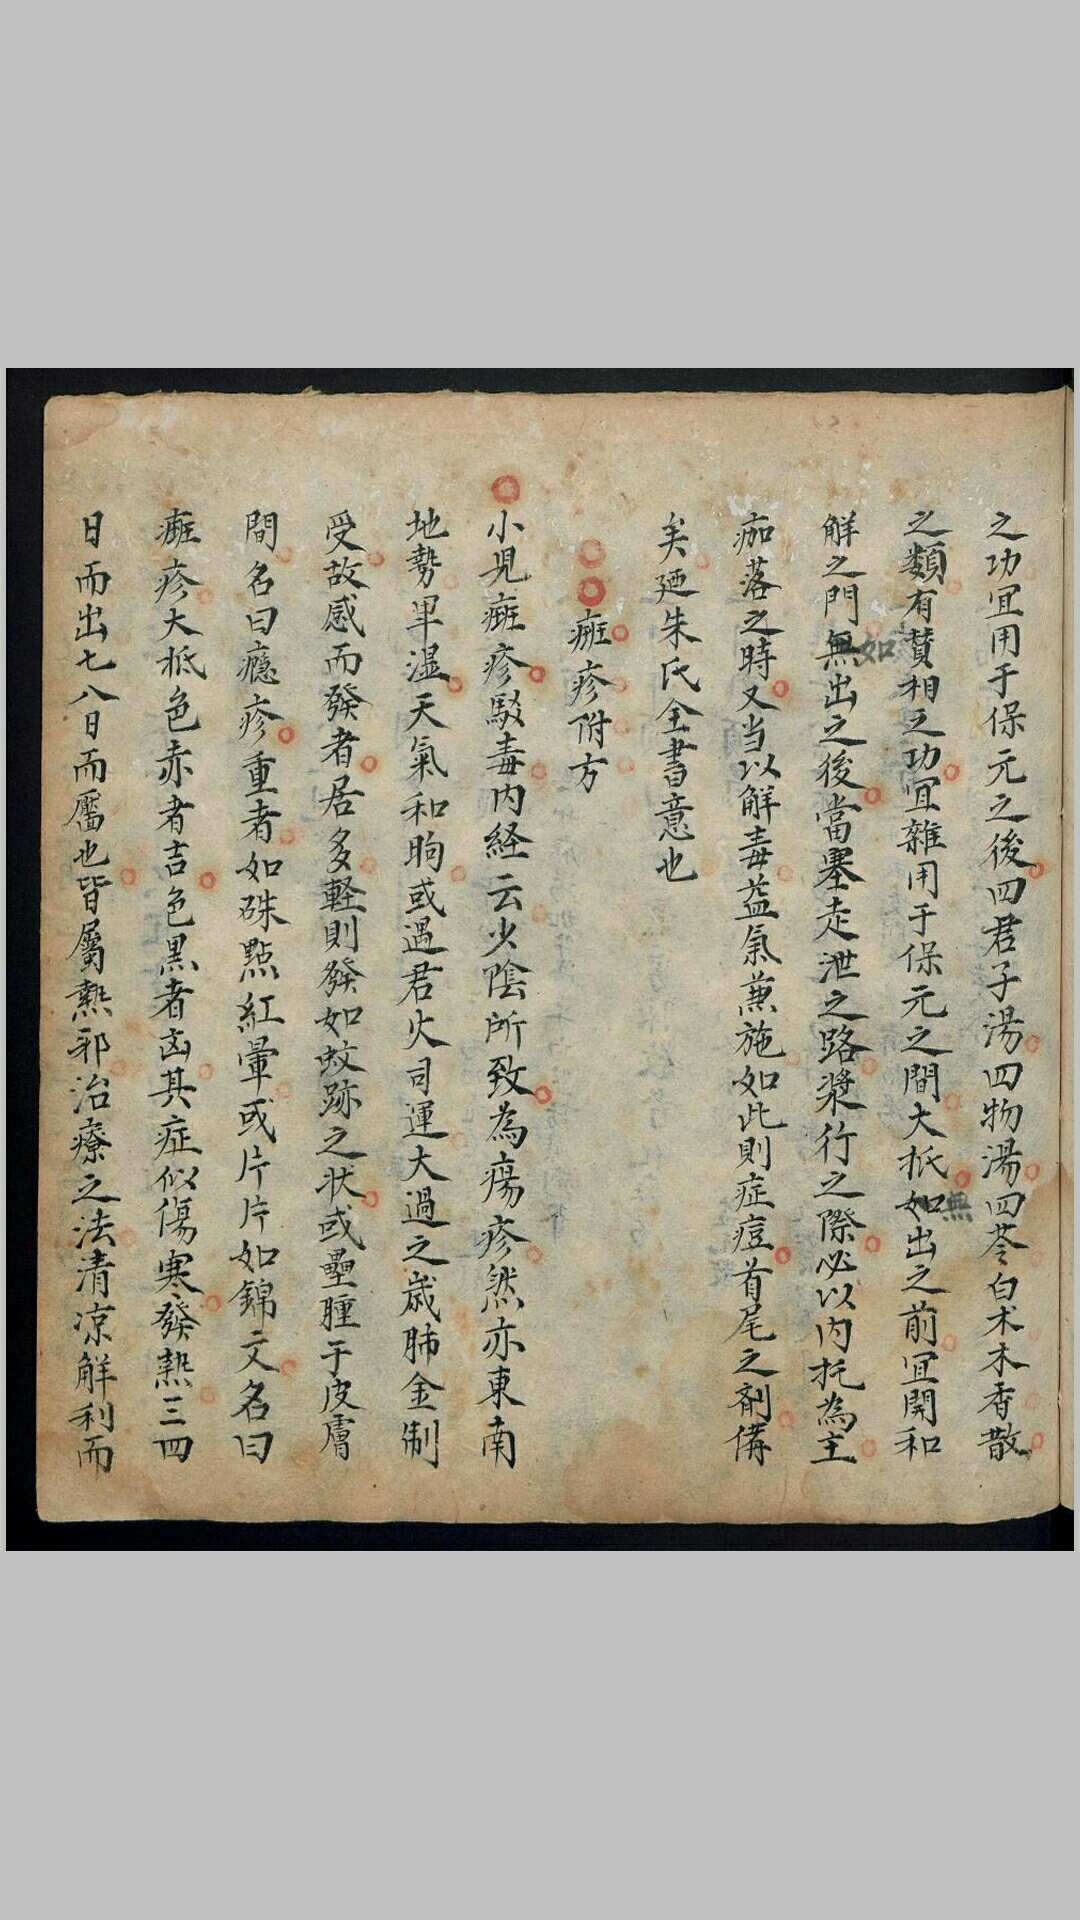 之功宜用于保元之後四君子湯四物湯四苓白术木香散
之類有賛相之功宜雜用于保元之間大抵如無出之前宜開和
解之門無如出之後當塞走泄之路漿行之際必以内托為主
痂落之時又当以解毒益氣兼施如此則症痘首尾之劑備
矣廼朱氏全書意也
癍疹附方
小児癍疹駁毒内経云少陰所致為瘍疹然亦東南
地勢卑湿天氣和煦或遇君火司運大過之歳肺金制
受故感而發者居多軽則發如蚊跡之状或壘腫于皮膚
間名曰癮疹重者如硃㸃紅暈或片片如錦文名曰
癍疹大抵色赤者吉色黒者凶其症似傷寒發熱三四
日而出七八日而靨也皆屬熱邪治療之法清凉解利而